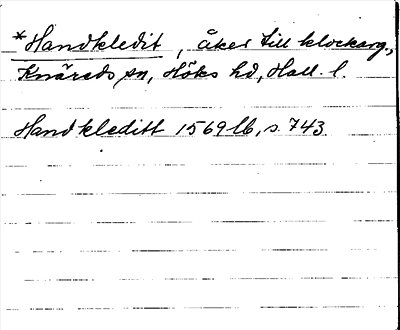 *Handkledit, åker till klockarg,
Knäreds sn, Höks hd, Hall. l.
Handkleditt 1569 lb, s. 743